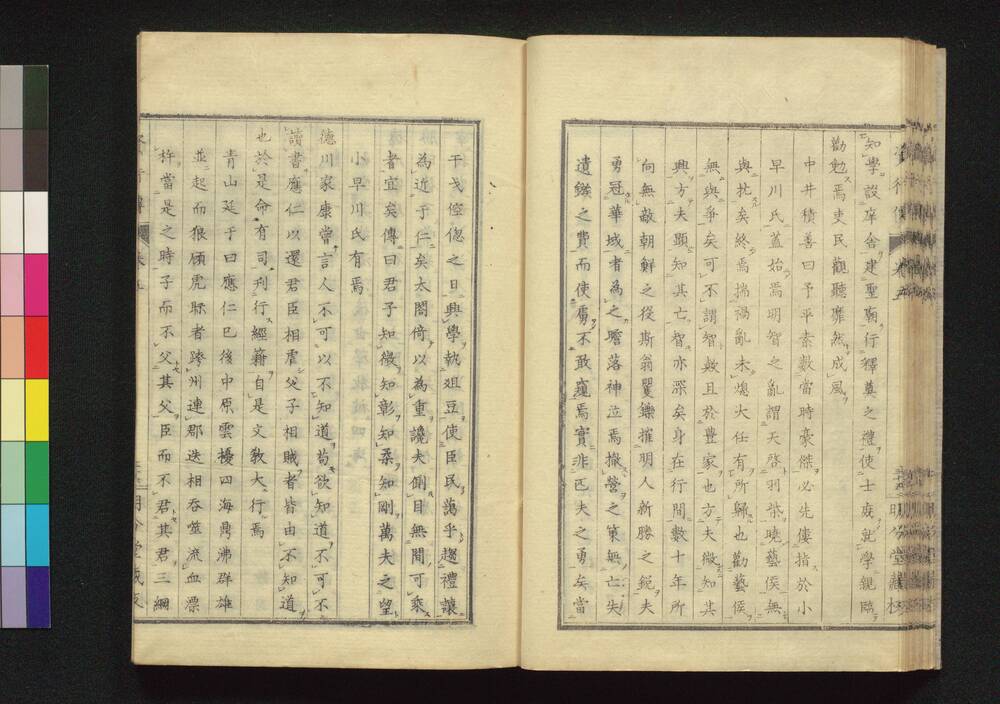 知學設庠舍建聖廟行釋奠之禮使士庶就學親臨
勸勉焉吏民觀聽靡然成風
中井積善曰予平素數當時豪傑必先僂指於小
早川氏蓋始焉明智之亂謂天啓羽柴曉藝侯無
與抗矣終焉揣禍亂未熄大任有所歸也勸藝侯
無與爭矣可不謂智數且於豐家也方夫微知其
興方夫顯知其亡智亦深矣身在行間數十年所
向無敵朝鮮之役斯翁矍鑠摧明人新勝之銳夫
勇冠華域者為之膽落神泣焉撤營之策無亡失
遺鏃之費而使虜不敢窺焉實非匹夫之勇矣當
明分堂藏板
干戈倥偬之日興學執俎豆使臣民藹乎趨禮讓
為近于仁矣太閤倚以為重讒夫側目無間可乘
者宜矣傳曰君子知微知彰知柔知剛萬夫之望
小早川氏有焉
德川家康嘗言人不可以不知道苟欲知道不可不
讀書應仁以還君臣相虐父子相賊者皆由不知道
也於是命有司刊行經籍自是文教大行焉
青山延于曰應仁已後中原雲擾四海鼎沸群雄
並起而狼顧虎眎者跨州連郡迭相吞噬流血漂
杵當是之時子而不父其父臣而不君其君三綱